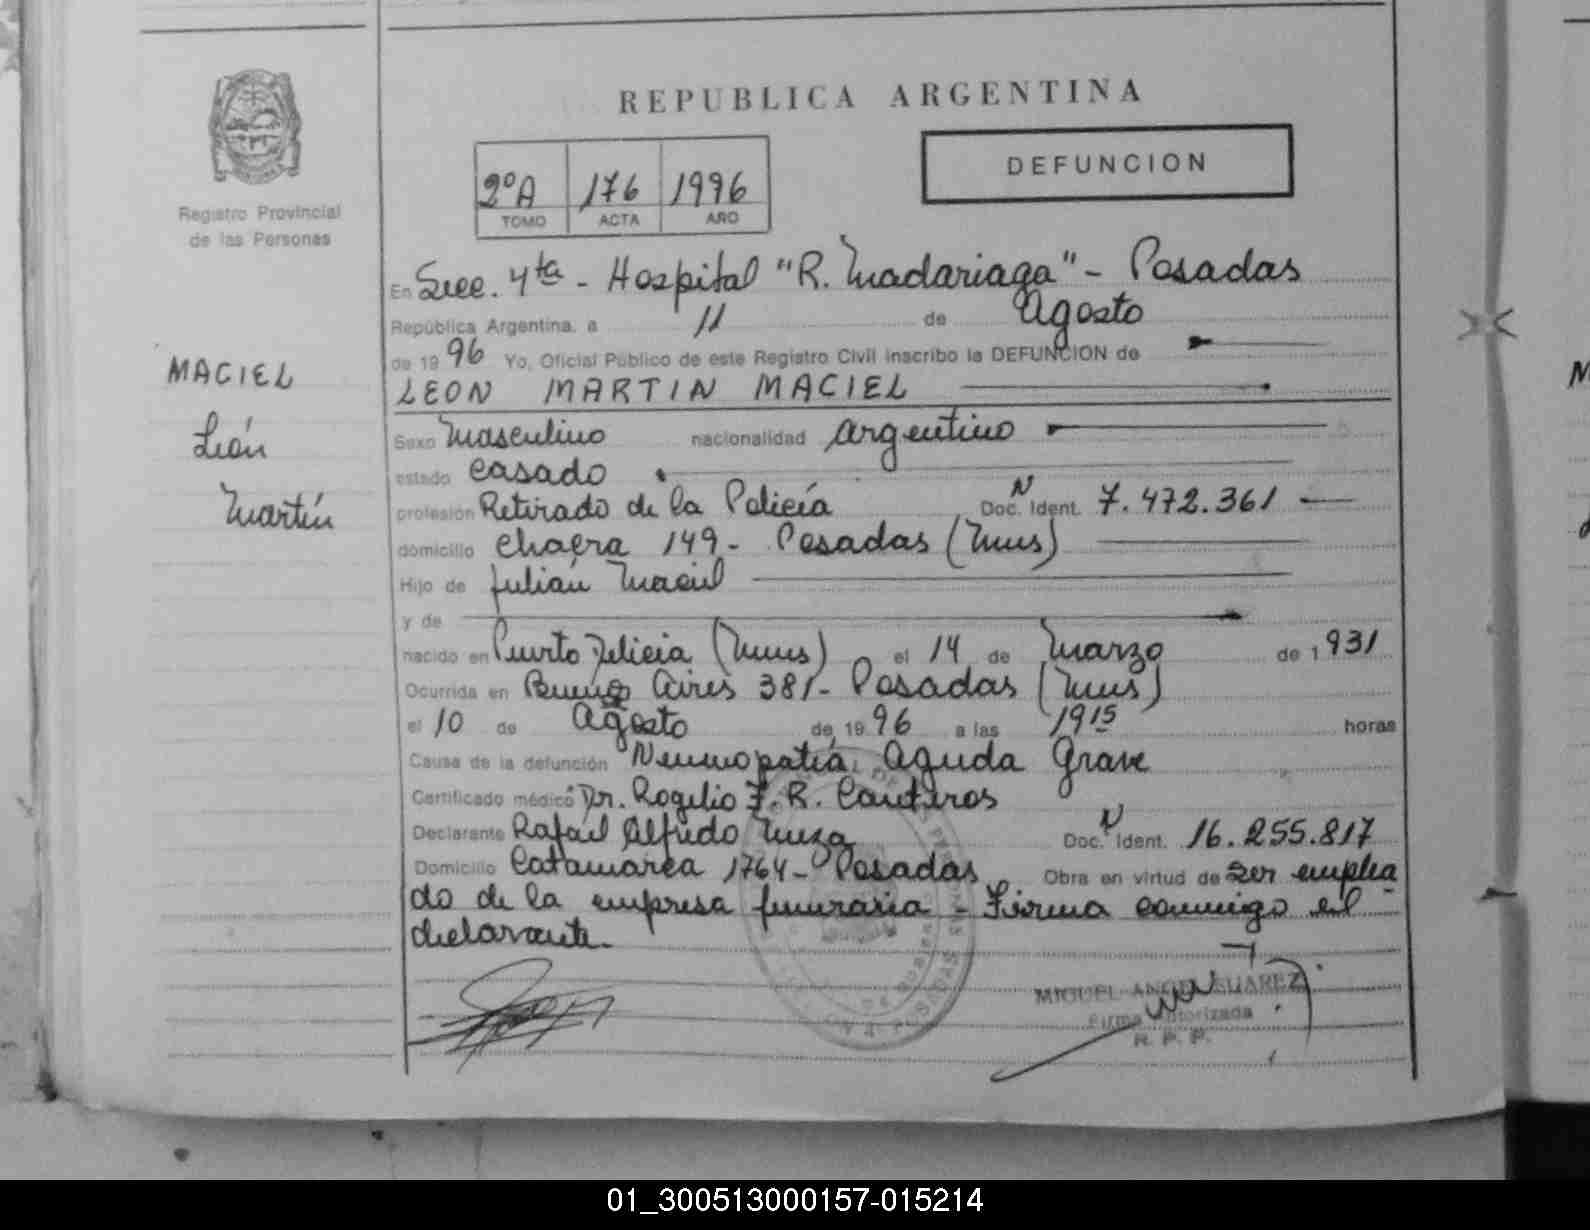 REPUBLICA ARGENTINA
Registro Provincial
de las Personas
2ºA 176 1996
TOMO ACTA AÑO
DEFUNCION
MACIEL
León
Martín
En Secc. 4ta - Hospital "R. Madariaga" - Posadas
República Argentina, a 11 de Agosto
de 1996 Yo, Oficial Público de este Registro Civil inscribo la DEFUNCION de
LEON MARTIN MACIEL
Sexo Masculino nacionalidad Argentino
estado Casado
profesión Retirado de la Policía Doc. Ident. N 7.472.361
domicilio Chacra 149 - Posadas (Mnes)
Hijo de Julián Maciel
y de
nacido en Puerto Delicia (Mnes) el 14 de Marzo de 1931
Ocurrida en Buenos Aires 381 - Posadas (Mnes)
el 10 de Agosto de 1996 a las 19 15 horas
Causa de la defunción Neumopatía Aguda Grave
Certificado médico Dr. Rogelio F. R. Canteros
Declarante Rafael Alfredo Meza Doc. Ident. N 16.255.817
Domicilio Catamarca 1764 - Posadas Obra en virtud de ser emplea
do de la empresa funeraria - Firma conmigo el
declarante.
MIGUEL ANGEL SUAREZ
Firma Autorizada
R. P. P.
01_300513000157-015214